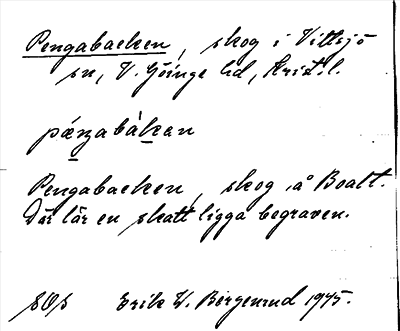 Pengabacken, skog i Vittsjö
sn, V. Göinge hd, Krist. l.
pæŋabàkan
Pengabacken, skog å Boalt.
Där lär en skatt ligga begraven.
Erik W. Bergenrud 1945.